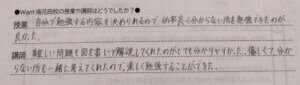 ●Wam 南花田校の授業や講師はどうでしたか？●
授業 自分で勉強する内容を決められるので、効率良く分からない所を勉強できたのが
良かった。
講師 難しい問題も図を書いて解説してくれたのがとても分かりやすかった。優しくて、分か
らない所も一緒に考えてくれたので、楽しく勉強することができた。